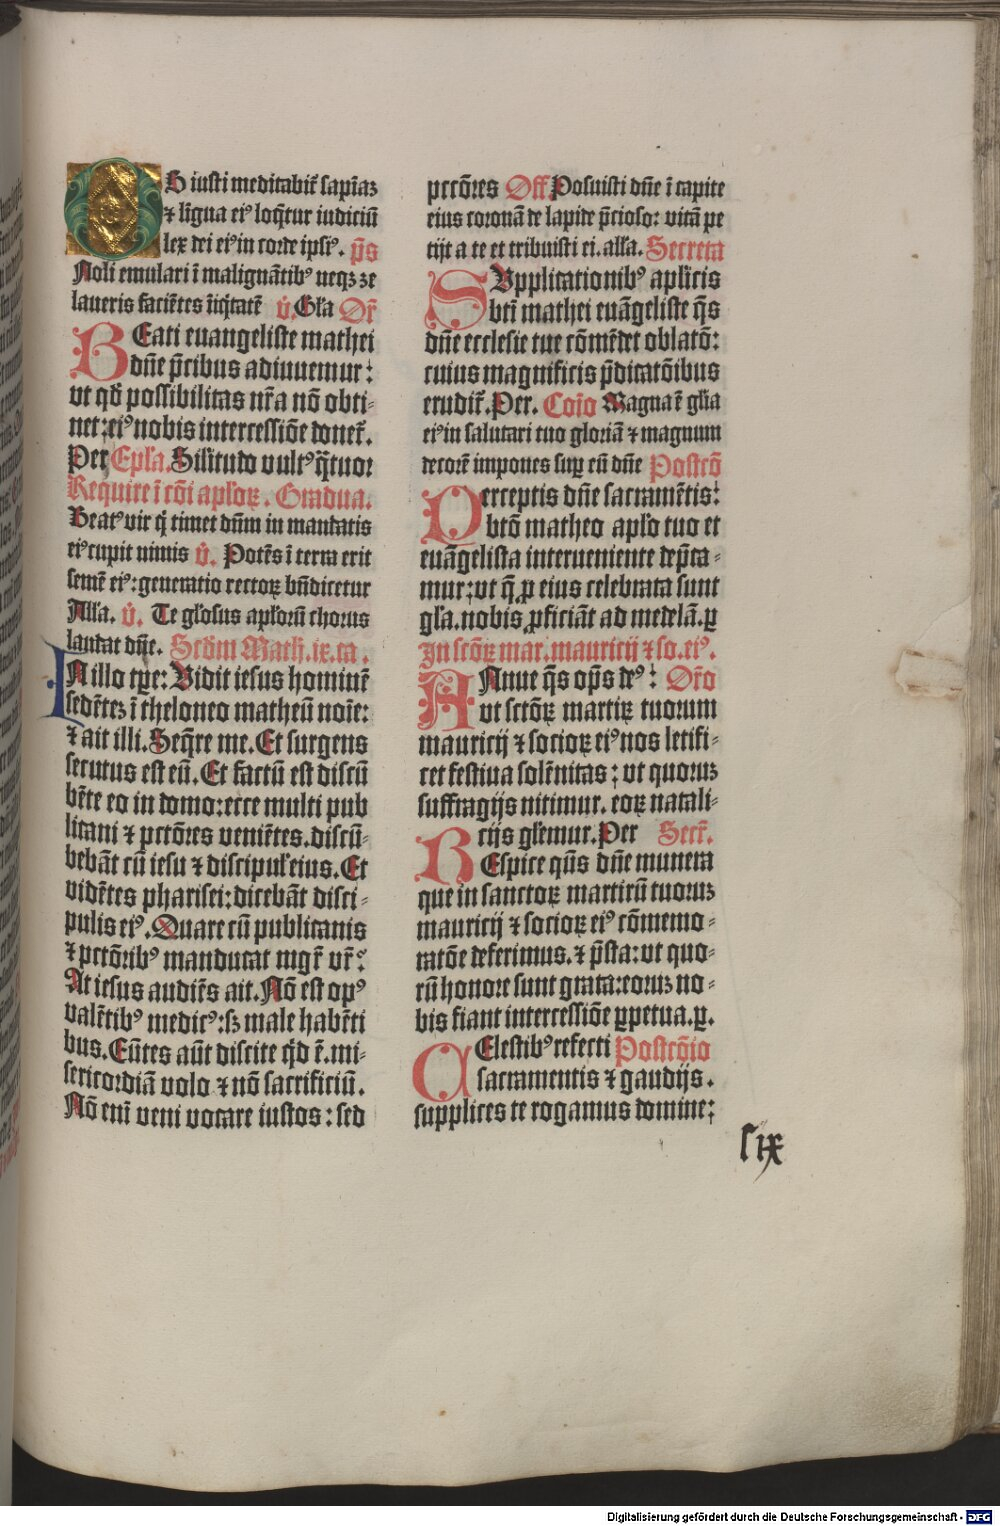 OS iusti meditabit᷑ sapīaꝫ
⁊ līgua eiꝰ loq̄tur iudiciū
lex dei eiꝰ in corde ipsiꝰ. p̄s
Noli emulari ī malignātibꝰ neqꝫ ze
laueris faciētes īiq̄tatē v̄. Gl̄a Or̄
BEati euangeliste mathei
dn̄e p̄cibus adiuuemur:
vt qd̄ possibilitas nr̄a nō obti-
net: eiꝰ nobis intercessiōe donet᷑.
Per Epl̄a. Sil̄itudo vultꝰ q̄tuor
Require ī cōi apl̄oꝝ. Gradua.
Beatꝰ vir q̄ timet dn̄m in mandatis
eiꝰ cupit nimis v̄. Potēs ī terra erit
semē eiꝰ: generatio rectoꝝ bn̄dicetur
Alla. v̄. Te gl̄osus apl̄orū chorus
laudat dn̄e. Scd̄m Math. ix. ca.
IN illo tꝑe: Vidit iesus hominē
sedētez ī theloneo matheū noīe:
⁊ ait illi. Seq̄re me. Et surgens
secutus est eū. Et factū est discū
bēte eo in domo: ecce multi pub
licani ⁊ pctōres veniētes. discū-
bebāt cū iesu ⁊ discipul̄ eius. Et
vidētes pharisei: dicebāt disci-
pulis eiꝰ. Quare cū publicanis
⁊ pctōribꝰ manducat mgr̄ vr̄?
At iesus audiēs ait. Nō est opꝰ
valētibꝰ medicꝰ: sꝫ male habēti
bus. Eūtes aūt discite qd̄ ē. mi-
sericordiā volo ⁊ nō sacrificiū.
Nō eni veni vocare iustos: sed
pctōres Off. Posuisti dn̄e ī capite
eius coronā de lapide p̄cioso: vitā pe
tijt a te et tribuisti ei. alla. Secreta
SVpplicationibꝰ apl̄icis
bt̄i mathei euāgeliste q̄s
dn̄e ecclesie tue cōmēdet oblatō:
cuius magnificis p̄dicatōibus
erudit᷑. Per. Cōio Magna ē gl̄ia
eiꝰ in salutari tuo gloriā ⁊ magnum
decorē impones suꝑ eū dn̄e Postcō
PErceptis dn̄e sacramētis:
btō matheo apl̄o tuo et
euāgelista interueniente dep̄ca-
mur: vt q̄ ꝓ eius celebrata sunt
gl̄a. nobis ꝓficiāt ad medelā. ꝑ
In sctōꝝ mar. mauricij ⁊ so. eiꝰ.
ANnue q̄s op̄s deꝰ: Or̄o
vt sctōꝝ martiꝝ tuorum
mauricij ⁊ socioꝝ eiꝰ nos letifi-
cet festiua solēnitas: vt quoruꝫ
suffragijs nitimur. eoꝝ natali-
cijs gl̄emur. Per Secr̄.
REspice q̄us dn̄e munera
que in sanctoꝝ martirū tuoruꝫ
mauricij ⁊ socioꝝ eiꝰ cōmemo-
ratōe deferimus. ⁊ p̄sta: vt quo-
rū honore sunt grata: eoruꝫ no-
bis fiant intercessiōe ꝑpetua. ꝑ.
CElestibꝰ refecti Postcōio
sacramentis ⁊ gaudijs.
supplices te rogamus domine:
lix
Digitalisierung gefördert durch die Deutsche Forschungsgemeinschaft - DFG